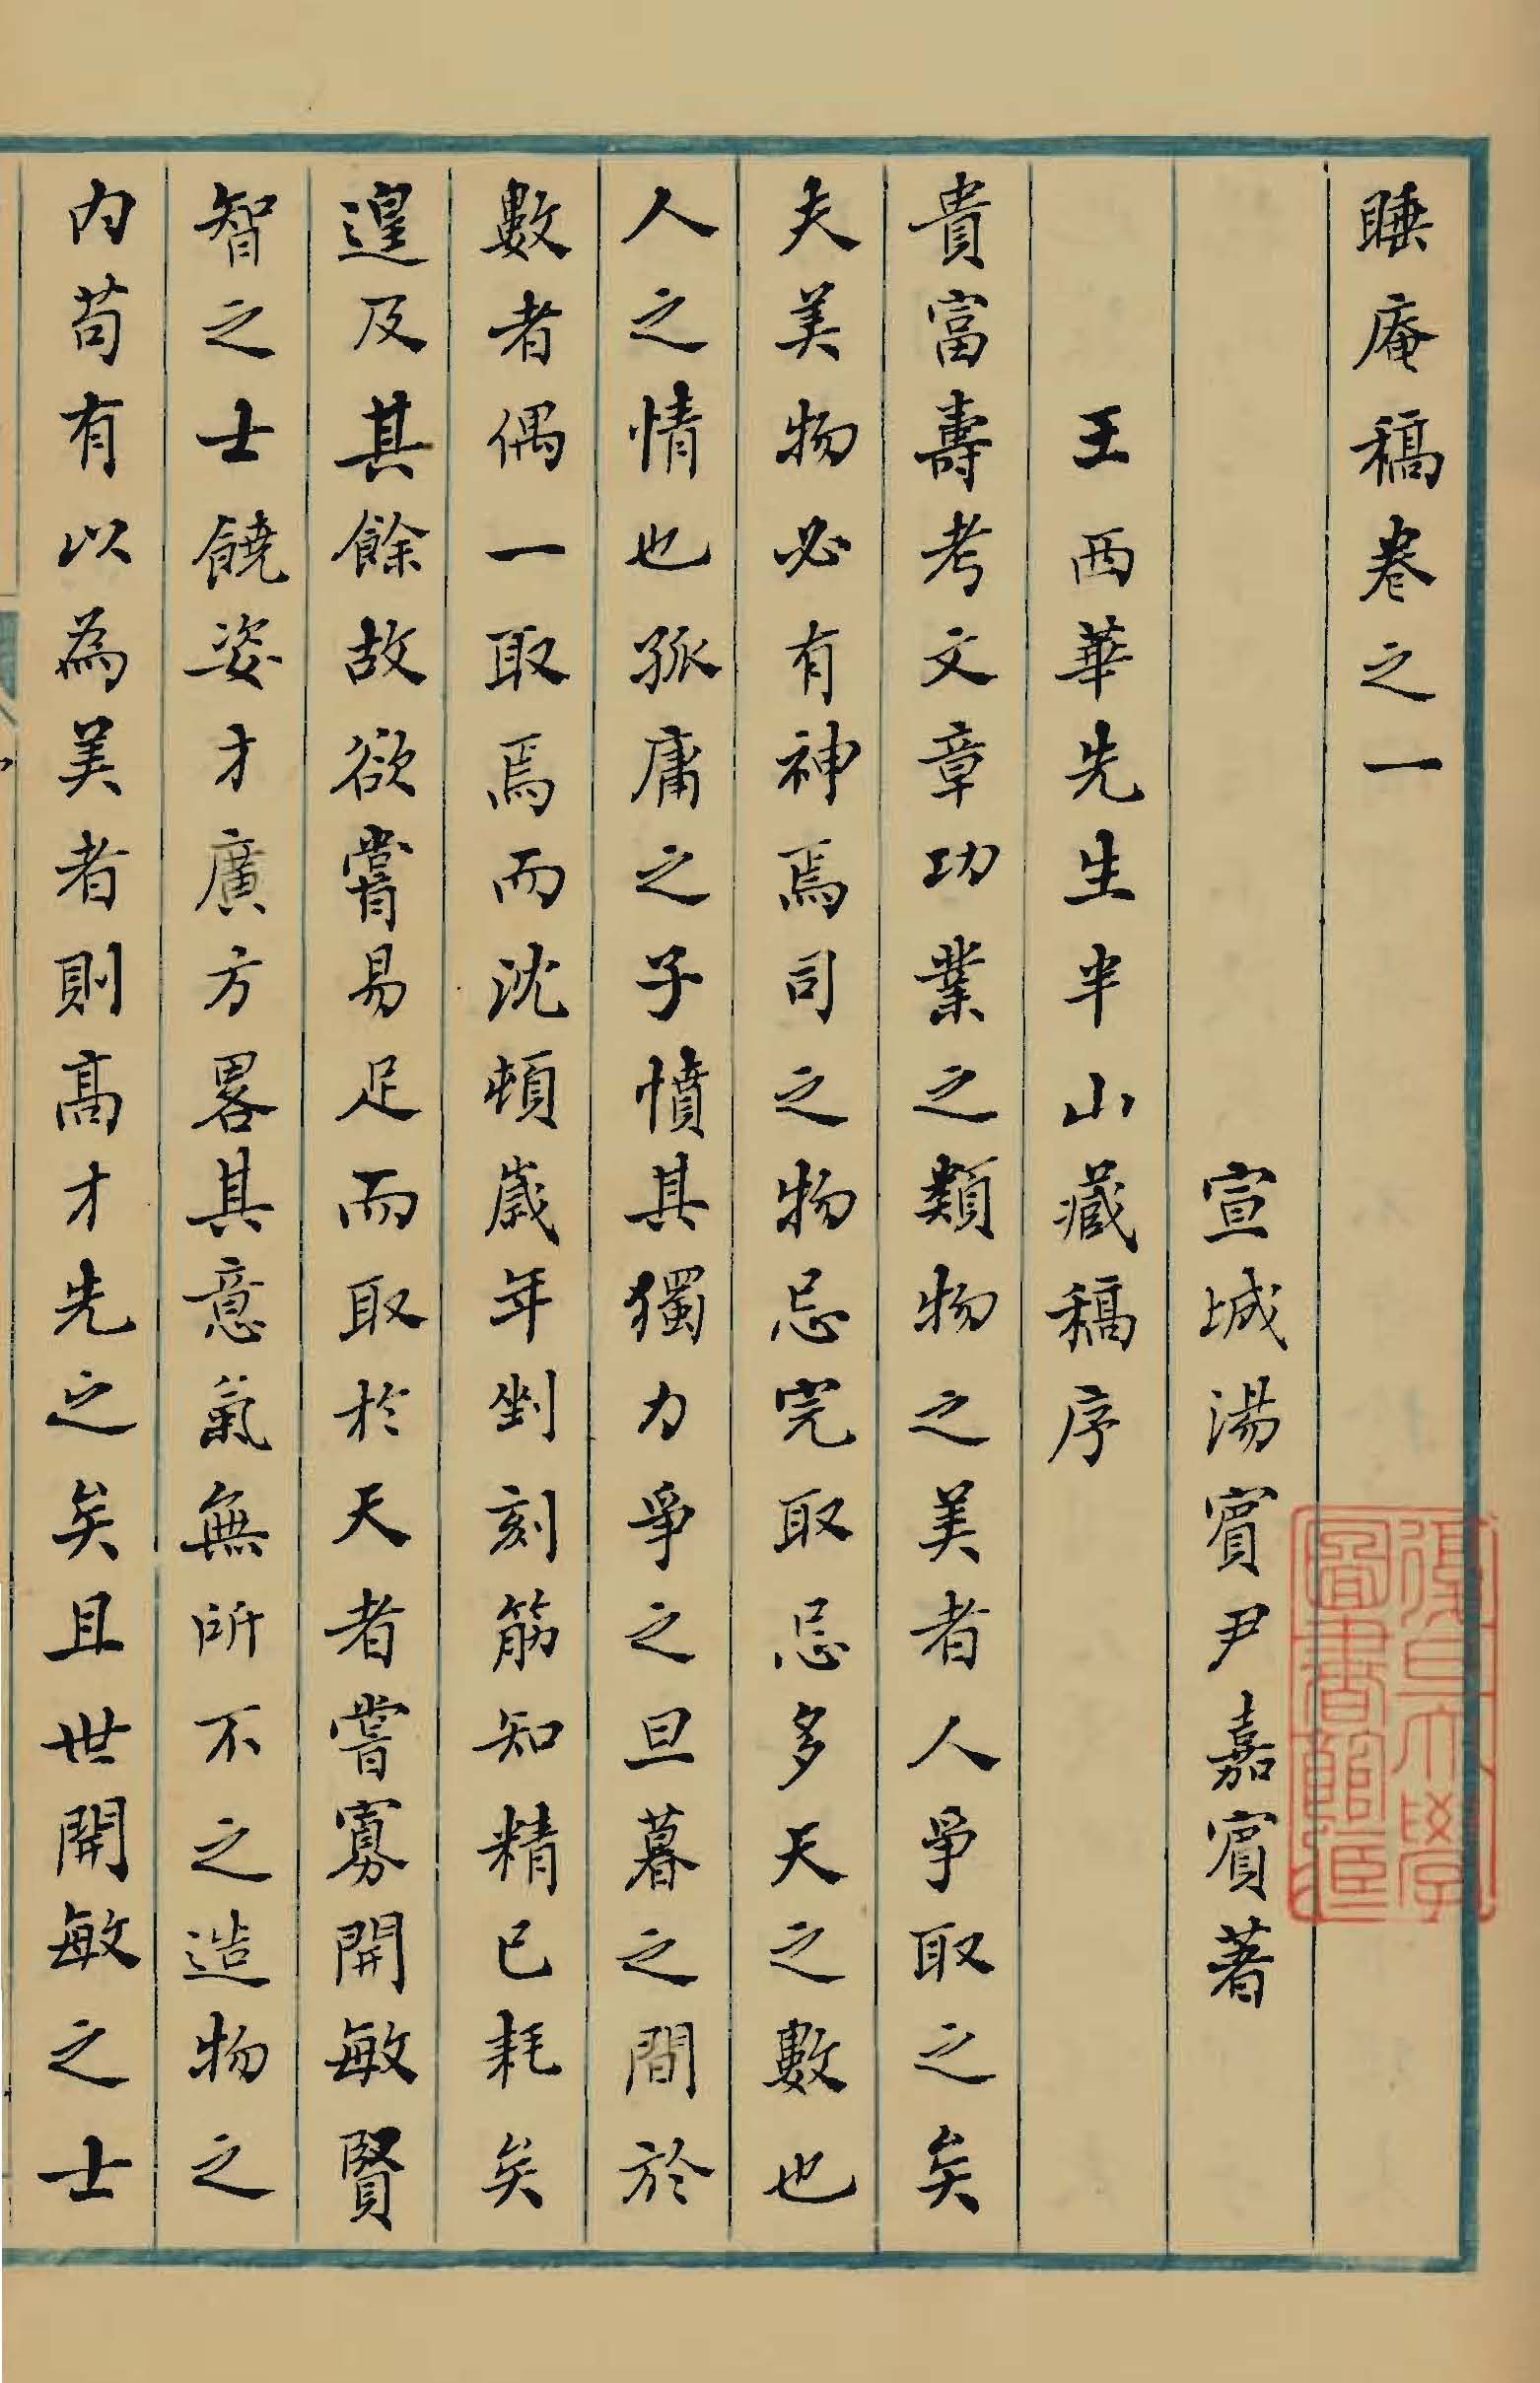 睡庵稿卷之一
宣城湯賓尹嘉賓著
王西華先生半山藏稿序
貴富壽考文章功業之類物之美者人爭取之矣
夫美物必有神焉司之物忌完取忌多天之數也
人之情也孤庸之子憤其獨力爭之旦暮之間於
數者偶一取焉而沈頓歲年剉刻筋知精已耗矣
遑及其餘故欲嘗易足而取於天者嘗寡開敏賢
智之士饒姿才廣方畧其意氣無所不之造物之
內苟有以為美者則高才先之矣且世開敏之士
復旦大學
圖書館藏